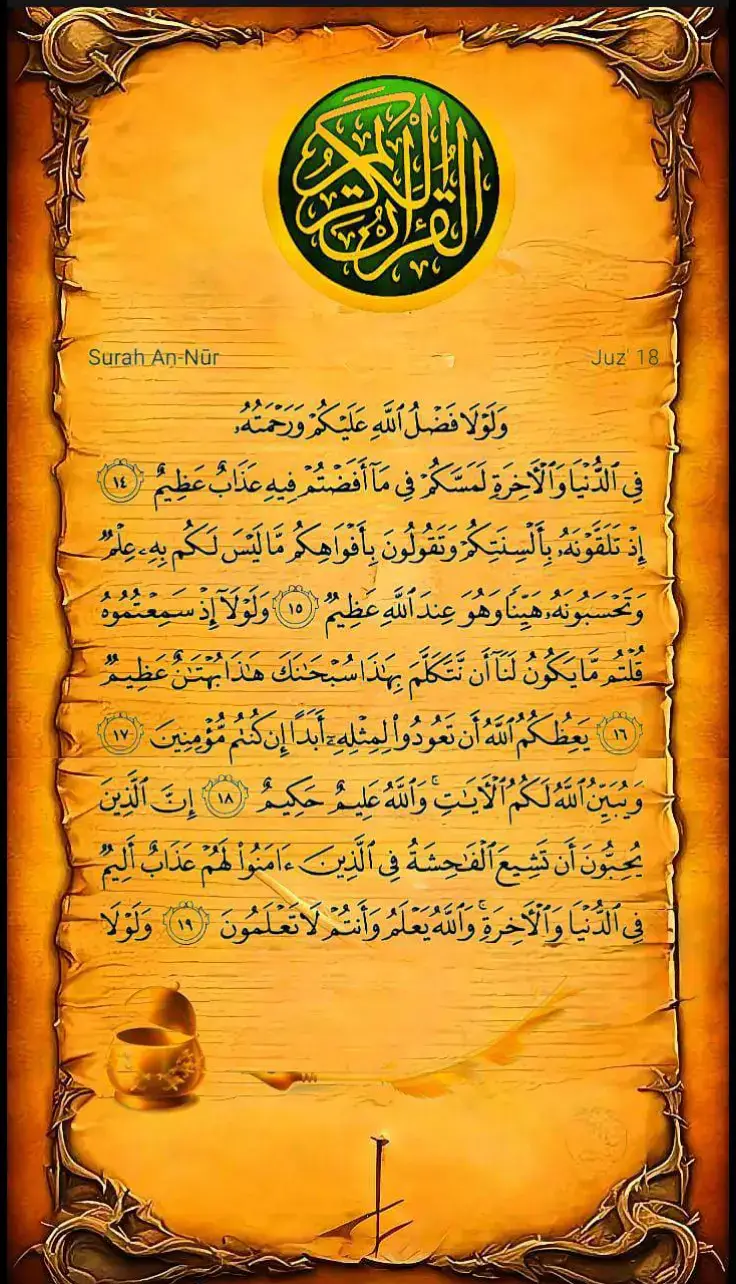 القرآن الكريم
Surah An-Nūr
Juz' 18
وَلَوْلَا فَضْلُ ٱللَّهِ عَلَيْكُمْ وَرَحْمَتُهُۥ
فِى ٱلدُّنْيَا وَٱلْـَٔاخِرَةِ لَمَسَّكُمْ فِى مَآ أَفَضْتُمْ فِيهِ عَذَابٌ عَظِيمٌ ١٤
إِذْ تَلَقَّوْنَهُۥ بِأَلْسِنَتِكُمْ وَتَقُولُونَ بِأَفْوَاهِكُم مَّا لَيْسَ لَكُم بِهِۦ عِلْمٌ
وَتَحْسَبُونَهُۥ هَيِّنًا وَهُوَ عِندَ ٱللَّهِ عَظِيمٌ ١٥ وَلَوْلَآ إِذْ سَمِعْتُمُوهُ
قُلْتُم مَّا يَكُونُ لَنَآ أَن نَّتَكَلَّمَ بِهَٰذَا سُبْحَٰنَكَ هَٰذَا بُهْتَٰنٌ عَظِيمٌ
١٦ يَعِظُكُمُ ٱللَّهُ أَن تَعُودُوا۟ لِمِثْلِهِۦٓ أَبَدًا إِن كُنتُم مُّؤْمِنِينَ ١٧
وَيُبَيِّنُ ٱللَّهُ لَكُمُ ٱلْـَٔايَٰتِ ۚ وَٱللَّهُ عَلِيمٌ حَكِيمٌ ١٨ إِنَّ ٱلَّذِينَ
يُحِبُّونَ أَن تَشِيعَ ٱلْفَٰحِشَةُ فِى ٱلَّذِينَ ءَامَنُوا۟ لَهُمْ عَذَابٌ أَلِيمٌ
فِى ٱلدُّنْيَا وَٱلْـَٔاخِرَةِ ۚ وَٱللَّهُ يَعْلَمُ وَأَنتُمْ لَا تَعْلَمُونَ ١٩ وَلَوْلَا